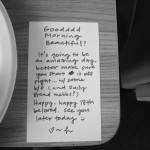 Goodddd
Morning
Beautiful!
It's going to be
an amazing day,
better make sure
you start it off
right... w/ some
(and
Happy, happy 18th
beloved. See you
later today